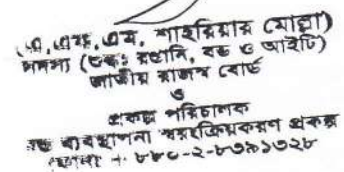 (এ, এফ, এম, শাহরিয়ার মোল্লা)
সদস্য (শুল্ক: রপ্তানি, বন্ড ও আইটি)
জাতীয় রাজস্ব বোর্ড
ও
প্রকল্প পরিচালক
বন্ড ব্যবস্থাপনা স্বয়ংক্রিয়করণ প্রকল্প
ফোনঃ + ৮৮০-২-৮৩৯১৩২৮